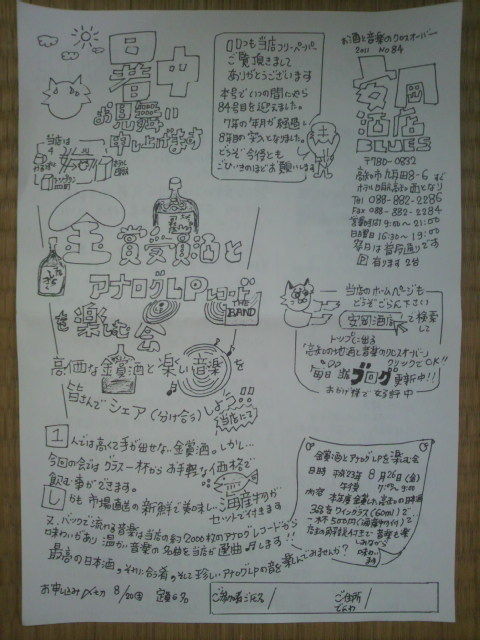 暑中
お見舞い
申し上げます
いつも当店フリーペーパー
ご覧頂きまして
ありがとうございます
本号でいつの間にやら
84号目を迎えました。
7年の年月が経過し
8年目の突入となりました。
どうぞ今後とも
ごひいきのほどお願いします
お酒と音楽のクロスオーバー
2011 No 84
安岡
酒店
BLUES
〒780-0832
高知市九反田8-6
Tel 088-882-2286
Fax 088-882-2284
営業時間 9:00〜21:00
日曜日 16:30〜19:00
P 有ります 2台
当店は
金賞受賞酒と
アナログLPレコード
THE BAND
を楽しむ会
高価な金賞酒と楽しい音楽を
皆さんでシェア(分け合う)しよう!!
(当店にて)
当店のホームページも
どうぞごらん下さい
安岡酒店 で検索
して
トップに出る
「高知の地酒と音楽のクロスオーバー」
クリックでOK!!
毎日 ブログ 更新中!!
おかげ様で 好評中
1人では高くて手が出せない金賞酒。しかし…
今回の会ではグラス一杯からお手軽な価格で
飲む事ができます。
しかも市場直送の新鮮で美味しい海産物が
セットで付きます
又、バックで流れる音楽は当店の約2000枚のアナログレコードから
味わいがあり温かい音楽の名曲を当店が選曲します!!
最高の日本酒、それに合う肴、そして珍しいアナログLPの音を楽しんでみませんか?
金賞酒とアナログLPを楽しむ会
日時 平成23年8月26日(金)
午後 7:00〜9:00
お申し込み〆切 8/20 定員6名
ご参加者ご氏名
ご住所
でんわ